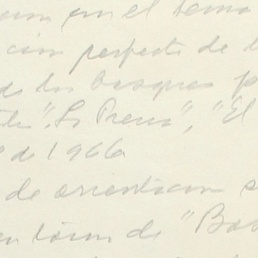 en el tema
ción perfecta de l
de los bosques p
"La Prensa", "El
" de 1966
de orientacion s
de "Bos